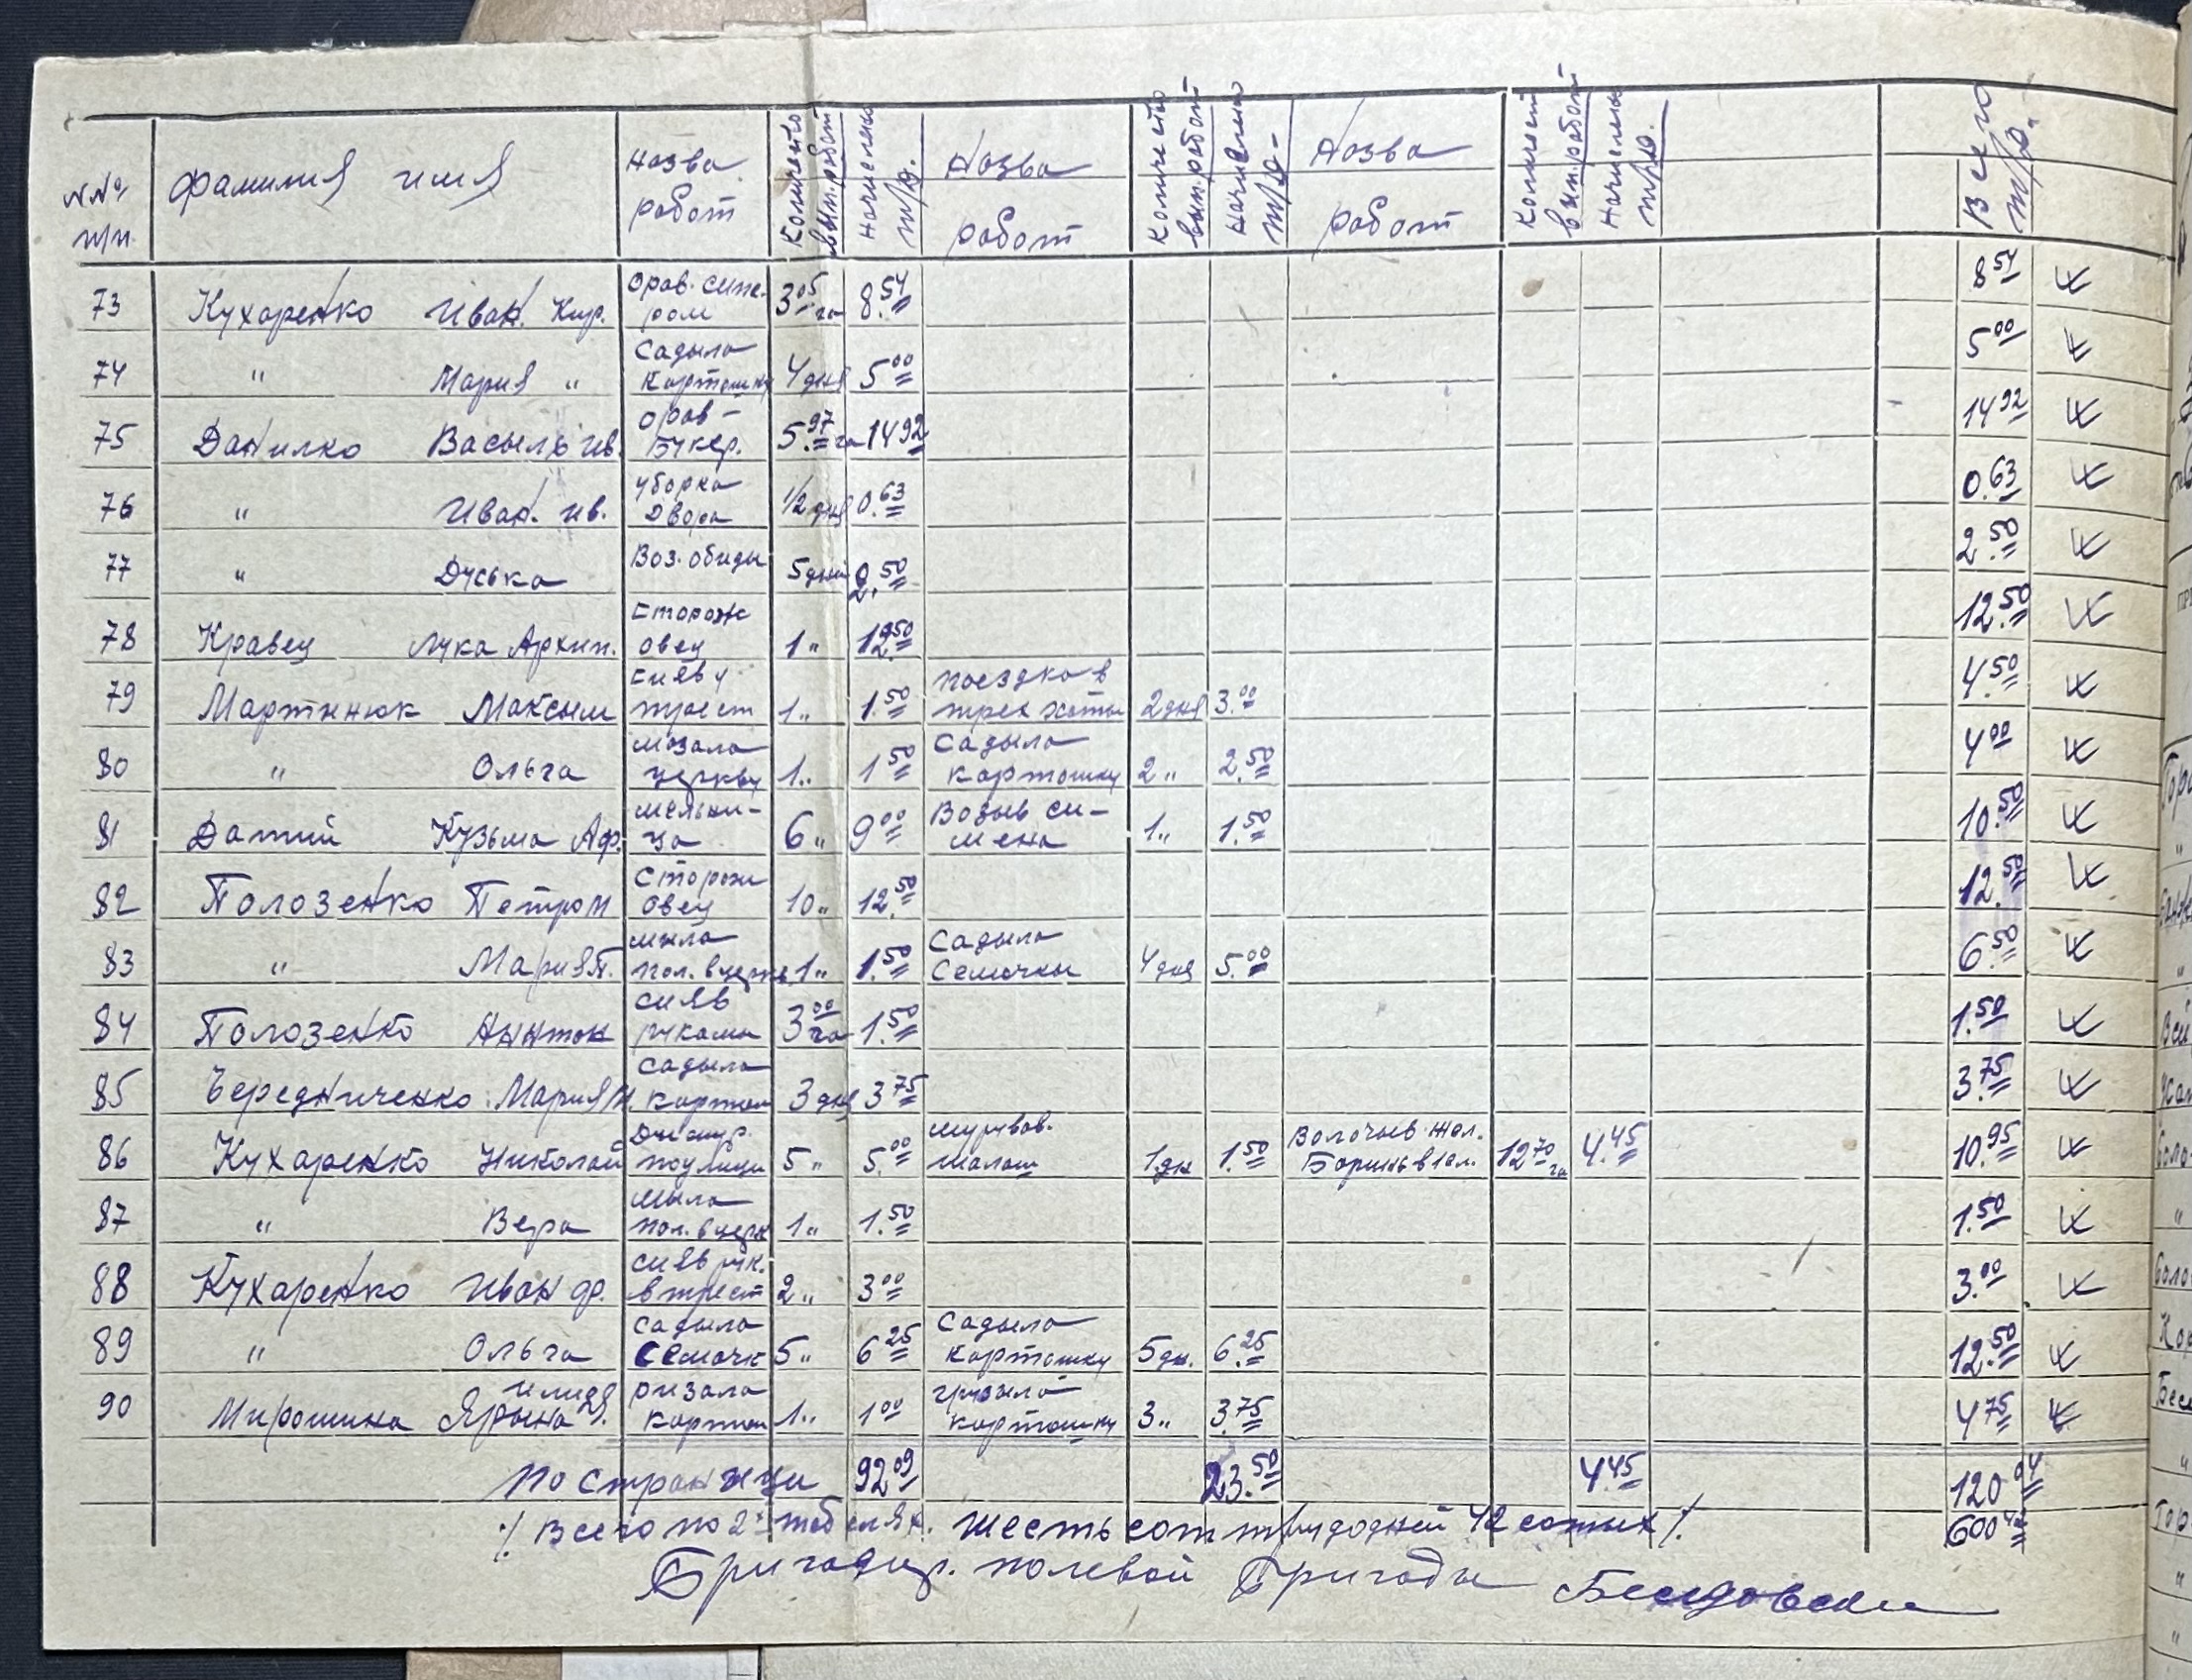 №№ п/п Фамилия имя Назва работ Количество вып. работ Начислено т/д. Назва работ Количество вып. работ Начислено т/д- Назва работ Количест вып. работ Начислены т/д. Всего т/д.
73 Кухаренко Иван Кир. 3.05 га 8.54 8.54
74 " Мария " Садыла картошку 4 дня 5.00 5.00
75 Данилко Васыль ив. орав- Букер. 5.97 га 14.92 14.92
76 " Иван. ив. уборка двора 1/2 дня 0.63 0.63
77 " Дуська Воз. обиды 5 дний 2.50 2.50
78 Кравец Лука Архип. Сторож овец 1" 12.50 12.50
79 Мартинюк Максым 1" 1.50 поездка в 2 дня 3.00 4.50
80 " Ольга мазала церкву 1" 1.50 Садыла картошку 2" 2.50 4.00
81 Датий Кузьма Аф. мельни-ца 6" 9.00 Возыв си-мена 1" 1.50 10.50
82 Полозенко Петро М Сторож овец 10" 12.50 12.50
83 " Мария П. мила пол. в церкв 1" 1.50 Садыла Семочки 4 дня 5.00 6.50
84 Полозенко Антон сияв рукамы 3.00 га 1.50 1.50
85 Бередниченко Мария И. садыла картош 3 дня 3.75 3.75
86 Кухаренко Николай 5" 5.00 1 дн 1.50 Волочыв 12.70 га 4.45 10.95
87 " Вера мыла пол. в церк 1" 1.50 1.50
88 Кухаренко Иван др. сияв рук. в трест 2" 3.00 3.00
89 " Ольга садыла Семочк 5" 6.25 садыла картошку 5 дн. 6.25 12.50
90 Мирошина Ярына ризала картош 1" 1.00 грузыла картошку 3" 3.75 4.75
По страници 92.09 23.50 4.45 120.04
/. Всего по 2х табелях. шестьсот трудодней 42 сотых /. 600.42
Бригадир. полевой Бригады